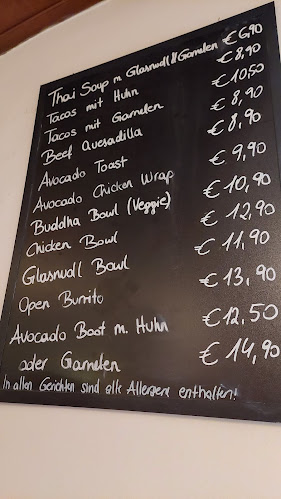 Thai Soup m. Glasnudl//Garnelen € 6,90
Tacos mit Huhn € 8,90
Tacos mit Garnelen €10,50
Beef Quesadilla € 8,90
Avocado Toast € 8,90
Avocado Chicken Wrap € 9,90
Buddha Bowl (Veggie) € 10,90
Chicken Bowl € 12,90
Glasnudl Bowl € 11,90
Open Burrito € 13,90
Avocado Boot m. Huhn €12,50
oder Garnelen € 14,90
In allen Gerichten sind alle Allergene enthalten!